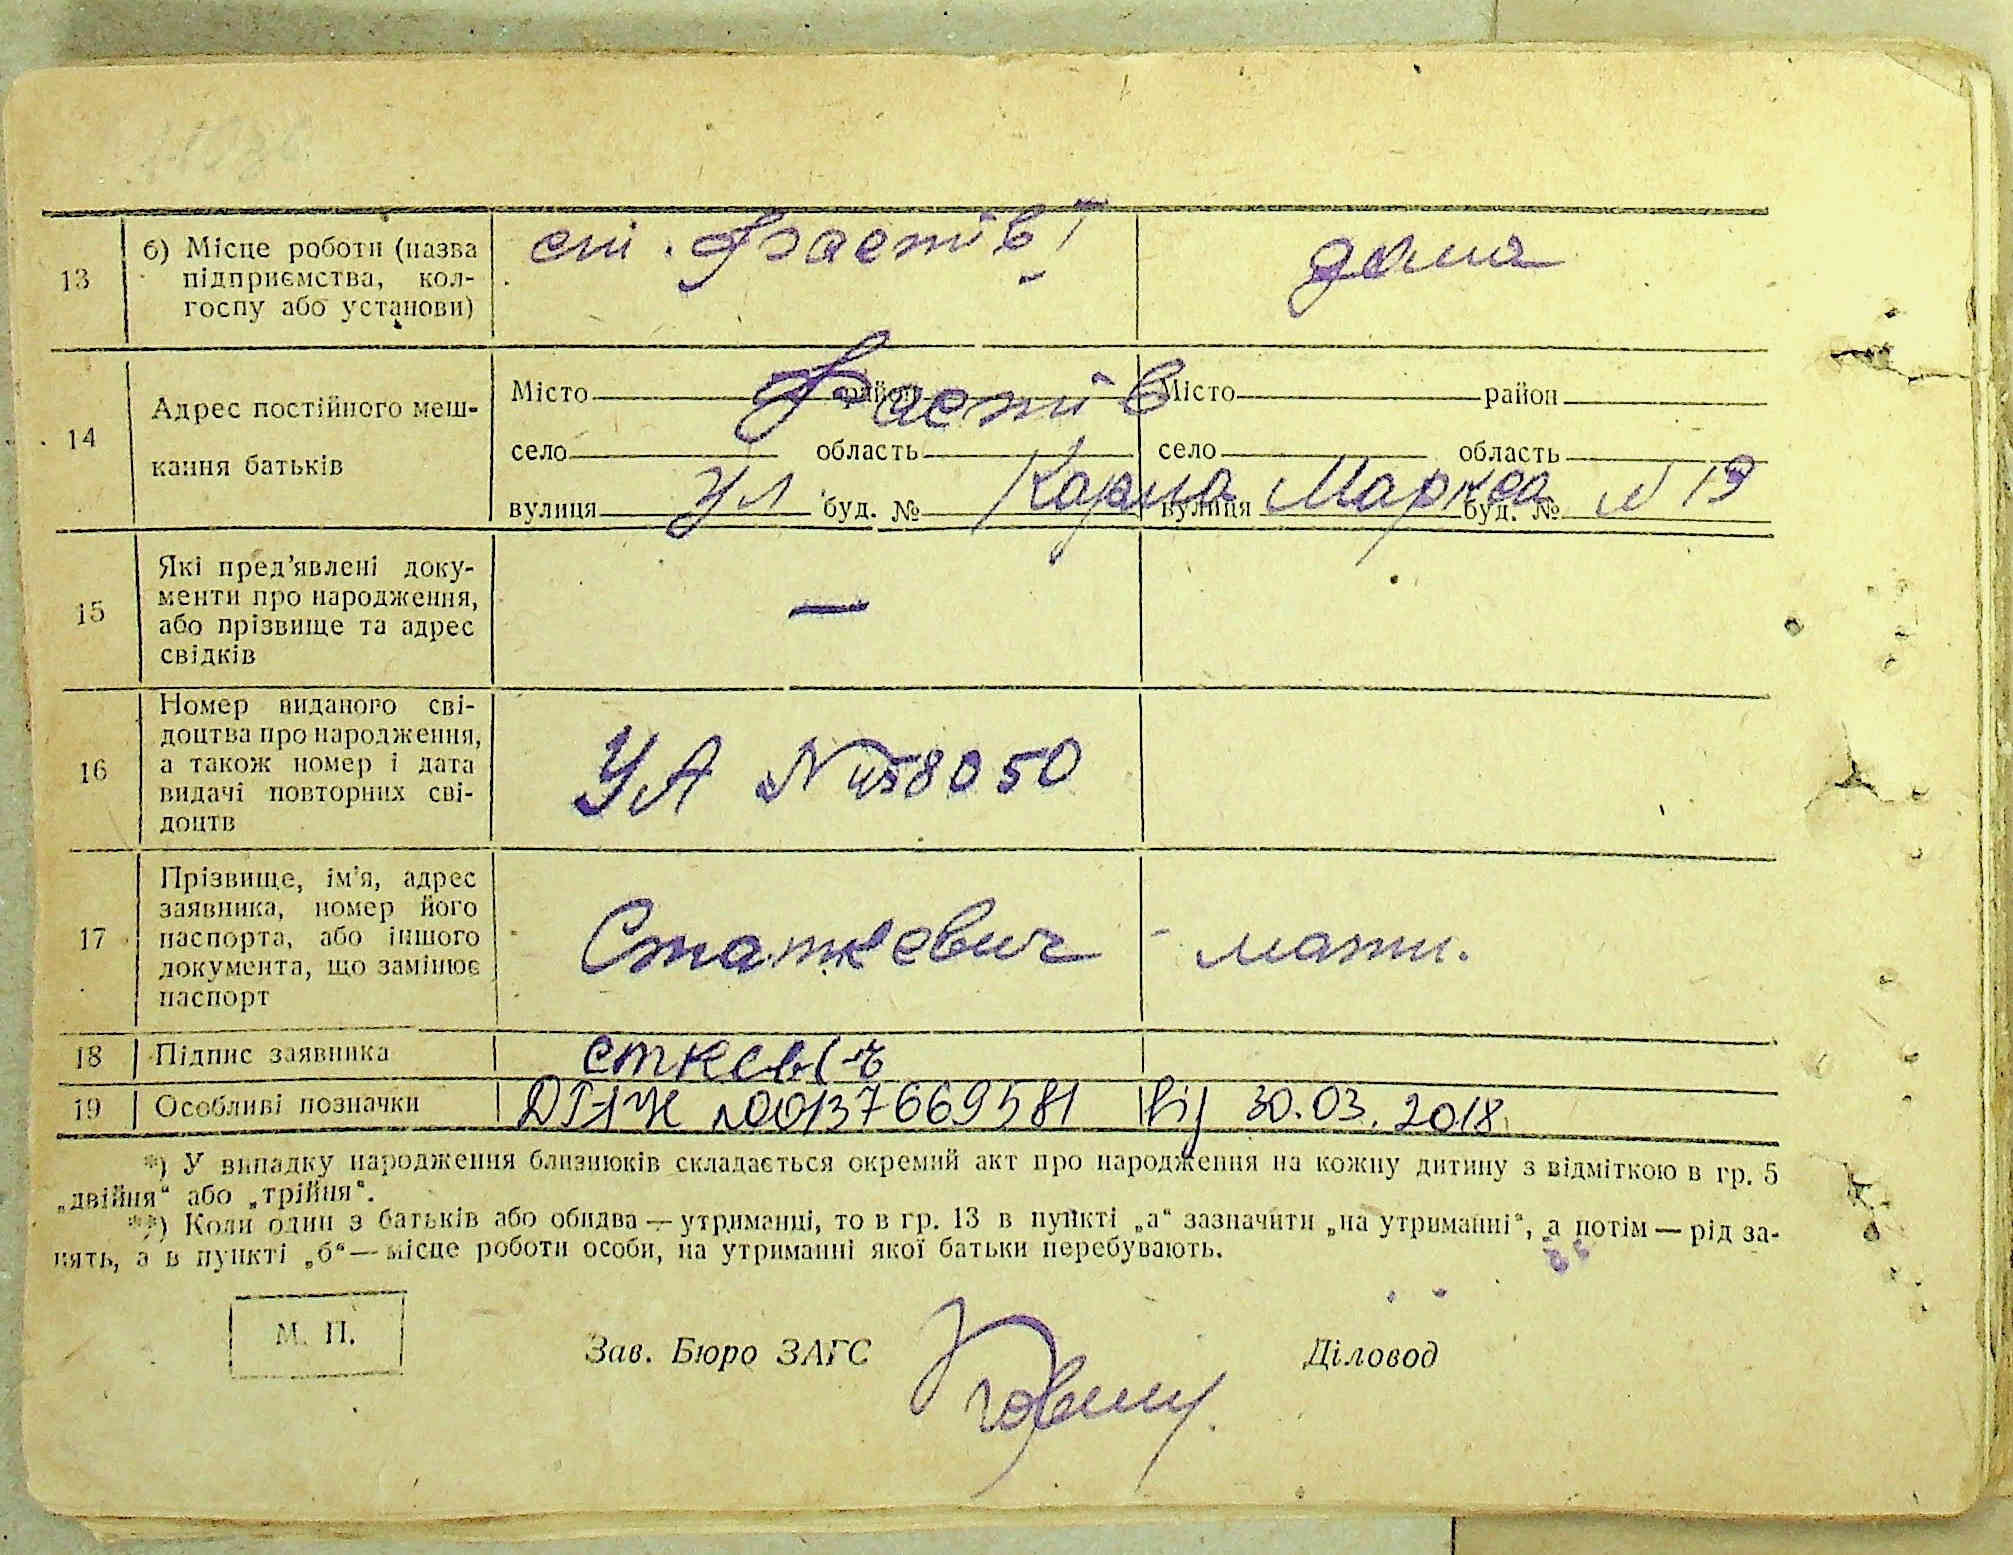 13
б) Місце роботи (назва
підприємства, кол-
госпу або установи)
ст. Фастів І
дома
14
Адрес постійного меш-
кання батьків
Місто район Місто район
Фастів
село область село область
вулиця буд. № вулиця буд. №
ул Карла Маркса № 19
15
Які пред’явлені доку-
менти про народження,
або прізвище та адрес
свідків
—
16
Номер виданого сві-
доцтва про народження,
а також номер і дата
видачі повторних сві-
доцтв
УА № 458050
17
Прізвище, ім’я, адрес
заявника, номер його
паспорта, або іншого
документа, що замінює
паспорт
Статкевич - мати.
18 Підпис заявника
19 Особливі позначки
№00137669581 від 30.03.2018
*) У випадку народження близнюків складається окремий акт про народження на кожну дитину з відміткою в гр. 5
„двійня“ або „трійня“.
**) Коли один з батьків або обидва — утриманці, то в гр. 13 в пункті „а“ зазначити „на утриманні“, а потім — рід за-
нять, а в пункті „б“ — місце роботи особи, на утриманні якої батьки перебувають.
М. П.
Зав. Бюро ЗАГС
Діловод